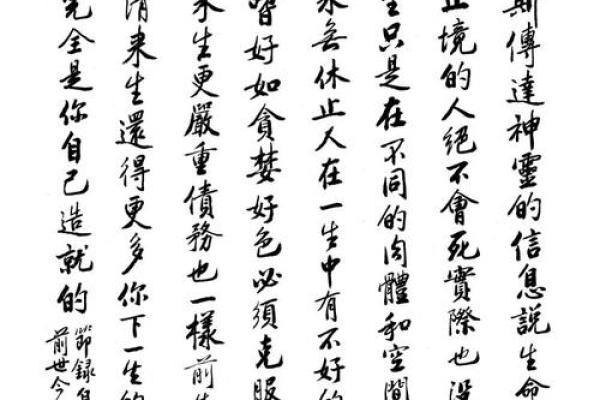 斯傳達神靈的信息說生命
止境的人絕不會死實際也沒
只是在不同的肉體和空間
永無休止人在一生中有不好的
嗜好如貪婪好色必須克服
來生更嚴重債務也一樣前生
清来生還得更多你下一生的
完全是你自己造就的
節録自
前世今